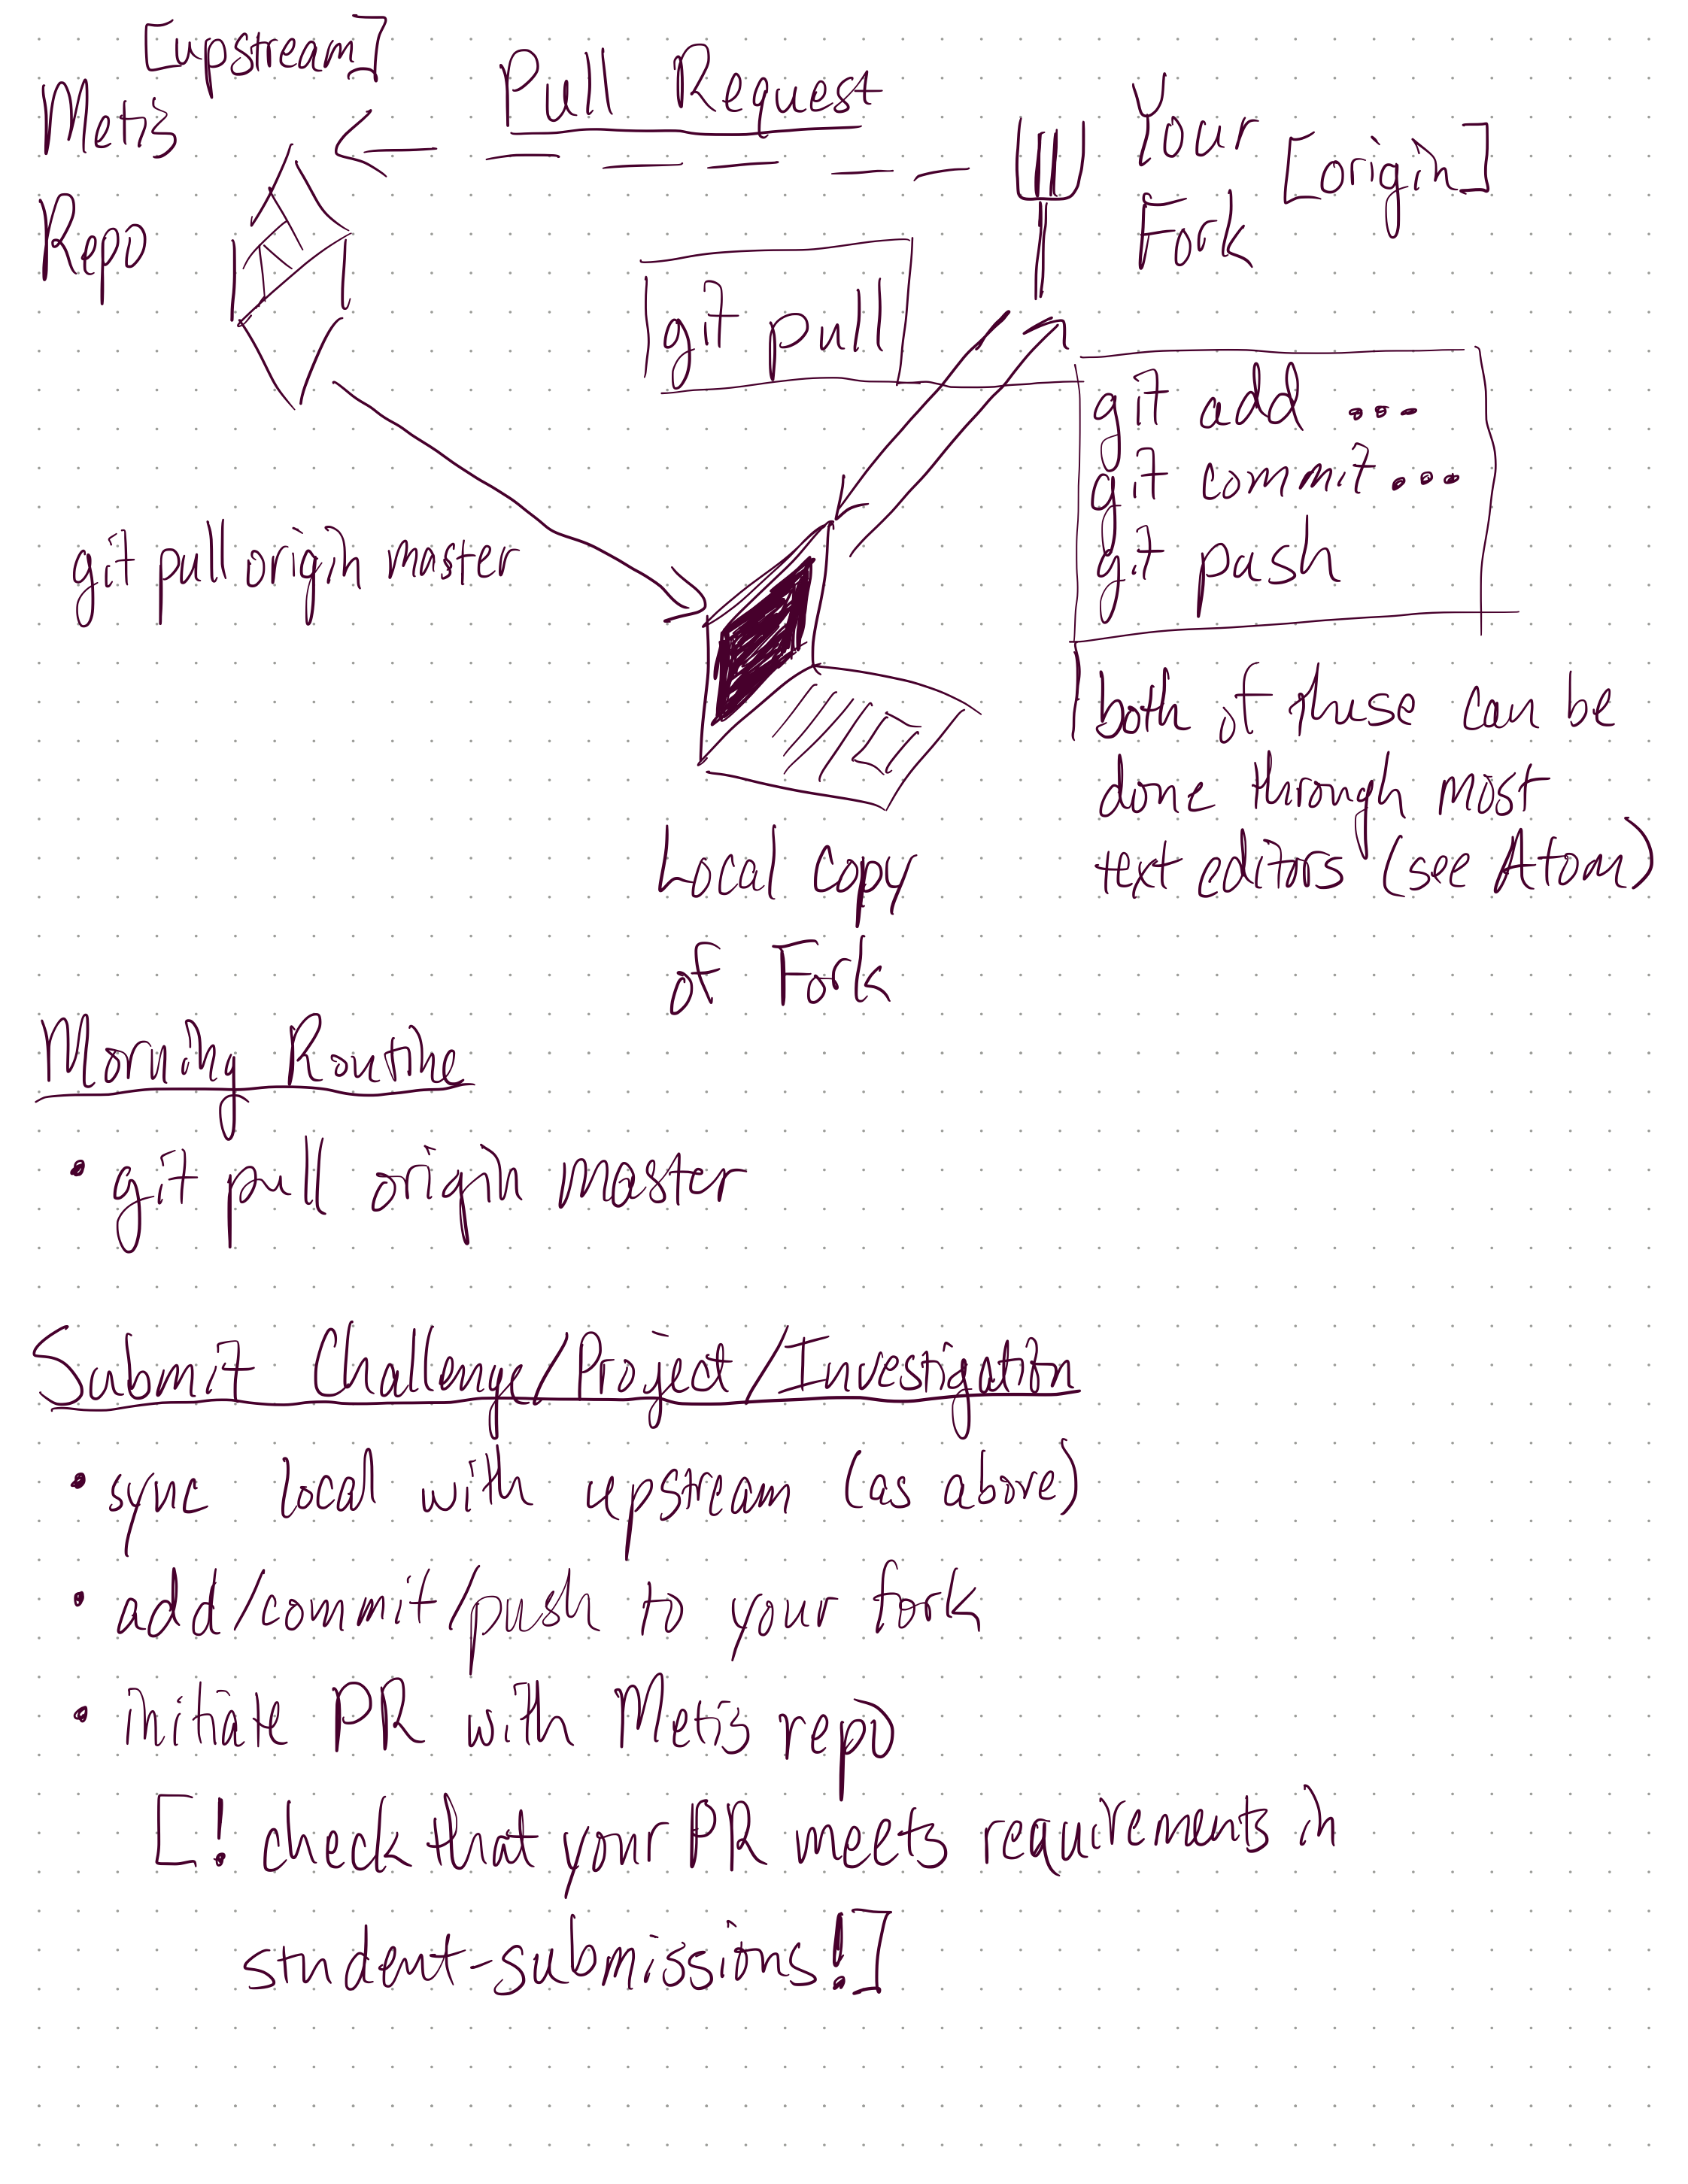 [upstream]
Metis
Repo
Pull Request
Your
Fork
[origin]
git pull
git add ...
git commit...
git push
both of these can be
done through most
text editors (see Atom)
git pull origin master
Local copy
of Fork
Morning Routine
• git pull origin master
Submit Challenge/Project/Investigation
• sync local with upstream (as above)
• add/commit/push to your fork
• initiate PR with Metis repo
[! check that your PR meets requirements in
student-submissions!]